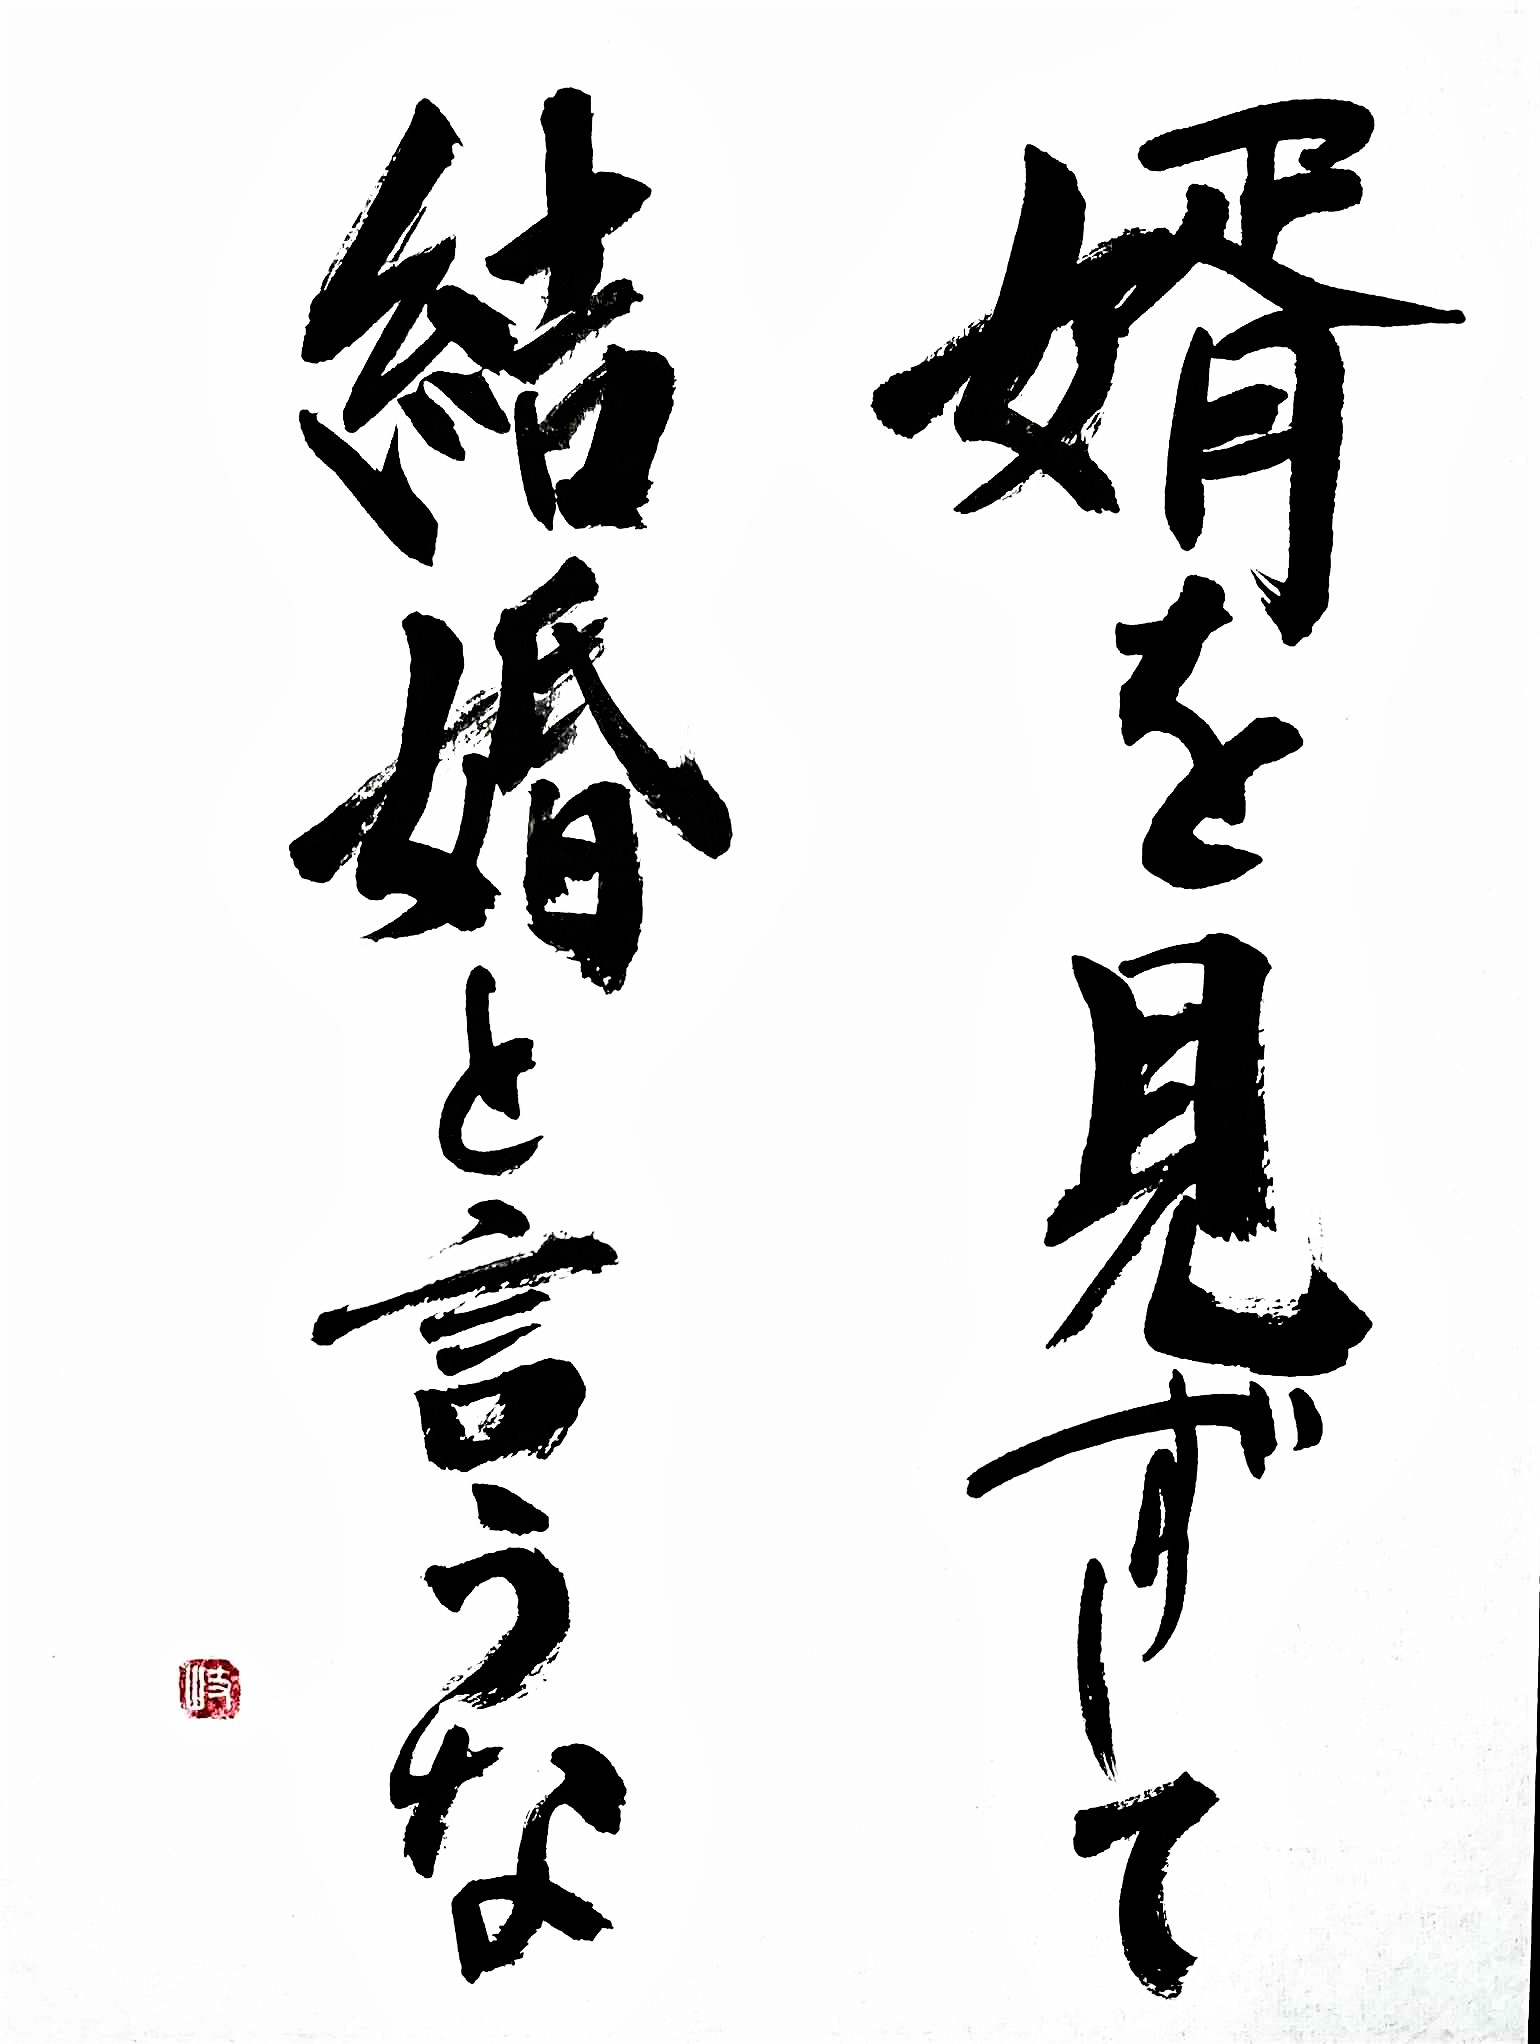 婿を見ずして
結婚と言うな
岐